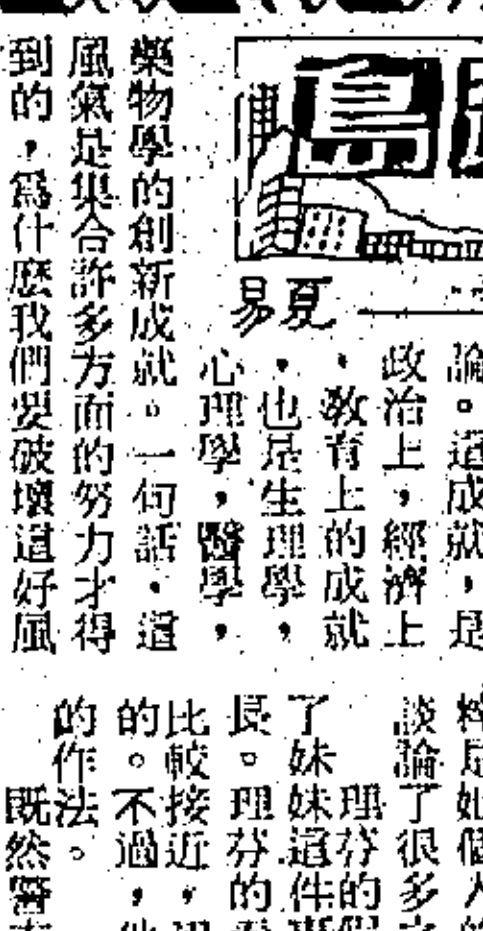 島
易夏
論。這成就，是
政治上，經濟上
，教育上的成就
，也是生理學，
心理學，醫學，
藥物學的創新成就。一句話，這
風氣是集合許多方面的努力才得
到的，爲什麼我們要破壞這好風
粹是她個人的
談論了很多
理芬的
了妹妹這件
長。理芬的
比較接近，
的。不過，他
的作法。
既然醫